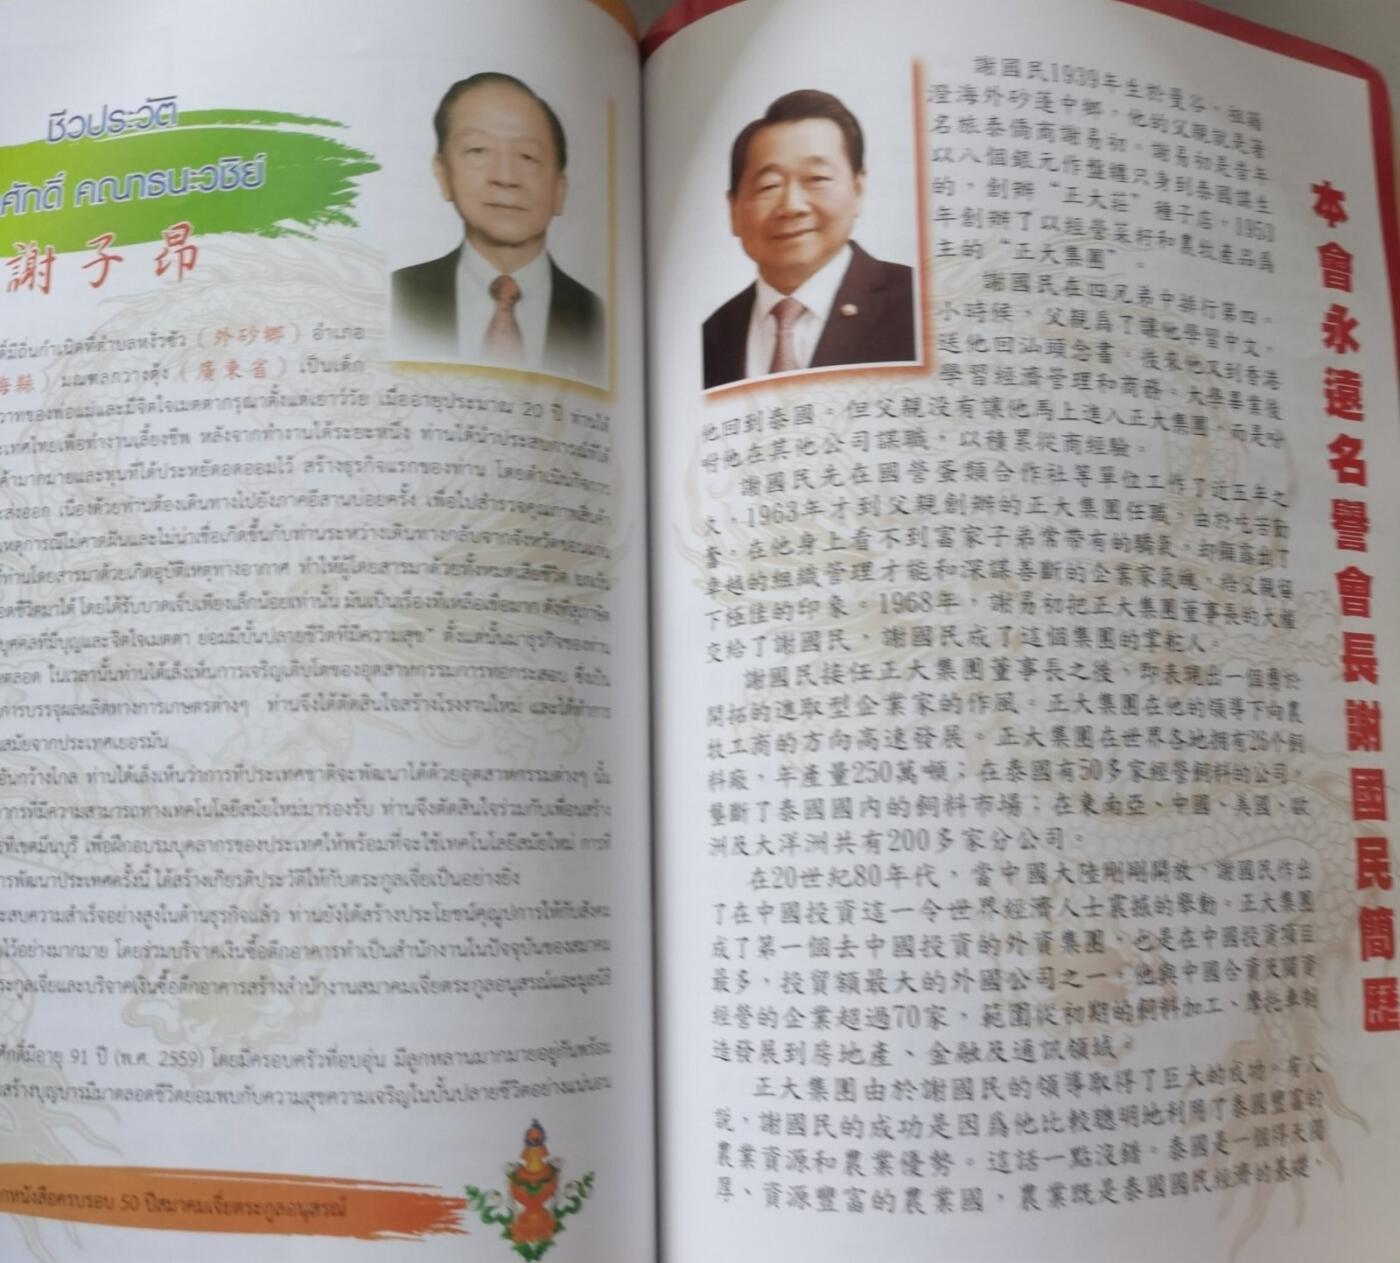 ชีวประวัติ
ศักดิ์ คณาธนะวชิย์
謝子昂
มีถิ่นกำเนิดที่ตำบลหงั่วซัว (外砂鄉) อำเภอ
海縣) มณฑลกวางตุ้ง (廣東省) เป็นเด็ก
วาทของพ่อแม่และมีจิตใจเมตตากรุณาตั้งแต่เยาว์วัย เมื่ออายุประมาณ 20 ปี ท่านได้
ะเทศไทยเพื่อทำงานเลี้ยงชีพ หลังจากทำงานได้ระยะหนึ่ง ท่านได้นำประสบการณ์ที่ได้
ค้ามากมายและทุนที่ได้ประหยัดอดออมไว้ สร้างธุรกิจแรกของท่าน โดยดำเนินกิจการ
ะส่งออก เนื่องด้วยท่านต้องเดินทางไปยังภาคอีสานบ่อยครั้ง เพื่อไปสำรวจคุณภาพสินค้า
หตุการณ์ไม่คาดฝันและไม่น่าเชื่อเกิดขึ้นกับท่านระหว่างเดินทางกลับจากจังหวัดขอนแก่น
ท่านโดยสารมาด้วยเกิดอุบัติเหตุทางอากาศ ทำให้ผู้โดยสารมาด้วยทั้งหมดเสียชีวิต ยกเว้น
อดชีวิตมาได้ โดยได้รับบาดเจ็บเพียงเล็กน้อยเท่านั้น มันเป็นเรื่องที่เหลือเชื่อมาก ดั่งที่สุภาษิต
บุคคลที่มีบุญและจิตใจเมตตา ย่อมมีบั้นปลายชีวิตที่มีความสุข" ตั้งแต่นั้นมาธุรกิจของท่าน
ตลอด ในเวลานั้นท่านได้เล็งเห็นการเจริญเติบโตของอุตสาหกรรมการทอกระสอบ ซึ่งเป็น
การบรรจุผลผลิตทางการเกษตรต่างๆ ท่านจึงได้ตัดสินใจสร้างโรงงานใหม่ และได้ทำการ
นสมัยจากประเทศเยอรมัน
อันกว้างไกล ท่านได้เล็งเห็นว่าการที่ประเทศชาติจะพัฒนาได้ด้วยอุตสาหกรรมต่างๆ นั้น
ากรที่มีความสามารถทางเทคโนโลยีสมัยใหม่มารองรับ ท่านจึงตัดสินใจร่วมกับเพื่อนสร้าง
ที่เขตมีนบุรี เพื่อฝึกอบรมบุคลากรของประเทศให้พร้อมที่จะใช้เทคโนโลยีสมัยใหม่ การที่
ารพัฒนาประเทศครั้งนี้ ได้สร้างเกียรติประวัติให้กับตระกูลเจี่ยเป็นอย่างยิ่ง
ะสบความสำเร็จอย่างสูงในด้านธุรกิจแล้ว ท่านยังได้สร้างประโยชน์คุณูปการให้กับสังคม
ไว้อย่างมากมาย โดยร่วมบริจาคเงินซื้อตึกอาคารทำเป็นสำนักงานในปัจจุบันของสมาคม
ะกูลเจี่ยและบริจาคเงินซื้อตึกอาคารสร้างสำนักงานสมาคมเจี่ยตระกูลอนุสรณ์และมูลนิธิ
ศักดิ์มีอายุ 91 ปี (พ.ศ. 2559) โดยมีครอบครัวที่อบอุ่น มีลูกหลานมากมายอยู่กันพร้อม
สร้างบุญบารมีมาตลอดชีวิตย่อมพบกับความสุขความเจริญในบั้นปลายชีวิตอย่างแน่นอน
กหนังสือครบรอบ 50 ปีสมาคมเจี่ยตระกูลอนุสรณ์
本會永遠名譽會長謝國民簡歷
謝國民1939年生於曼谷，祖籍
澄海外砂蓬中鄉，他的父親就是著
名旅泰僑商謝易初。謝易初是青年
以八個銀元作盤纏只身到泰國謀生
的，創辦“正大莊”種子店，1953
年創辦了以經營菜籽和農牧產品爲
主的“正大集團”。
謝國民在四兄弟中排行第四。
小時候，父親爲了讓他學習中文，
送他回汕頭念書。後來他又到香港
學習經濟管理和商務。大學畢業後
他回到泰國。但父親沒有讓他馬上進入正大集團，而是吩
咐他在其他公司謀職，以積累從商經驗。
謝國民先在國營蛋類合作社等單位工作了近五年之
久，1963年才到父親創辦的正大集團任職。由於吃苦勤
奮，在他身上看不到富家子弟常帶有的驕氣，却顯露出了
卓越的組織管理才能和深謀善斷的企業家氣魄，給父親留
下極佳的印象。1968年，謝易初把正大集團董事長的大權
交給了謝國民，謝國民成了這個集團的掌舵人。
謝國民接任正大集團董事長之後，即表現出一個勇於
開拓的進取型企業家的作風。正大集團在他的領導下向農
牧工商的方向高速發展。正大集團在世界各地擁有26个飼
料廠，年產量250萬噸；在泰國有50多家經營飼料的公司，
壟斷了泰國國内的飼料市場；在東南亞、中國、美國、歐
洲及大洋洲共有200多家分公司。
在20世紀80年代，當中國大陸剛剛開放，謝國民作出
了在中國投資這一令世界經濟人士震撼的舉動。正大集團
成了第一個去中國投資的外資集團，也是在中國投資項目
最多，投資額最大的外國公司之一。他與中國合資及獨資
經營的企業超過70家，範圍從初期的飼料加工、摩托車制
造發展到房地產、金融及通訊領域。
正大集團由於謝國民的領導取得了巨大的成功。有人
說，謝國民的成功是因爲他比較聰明地利用了泰國豐富的
農業資源和農業優勢。這話一點沒錯。泰國是一個得天獨
厚、資源豐富的農業國，農業既是泰國國民經濟的基礎，